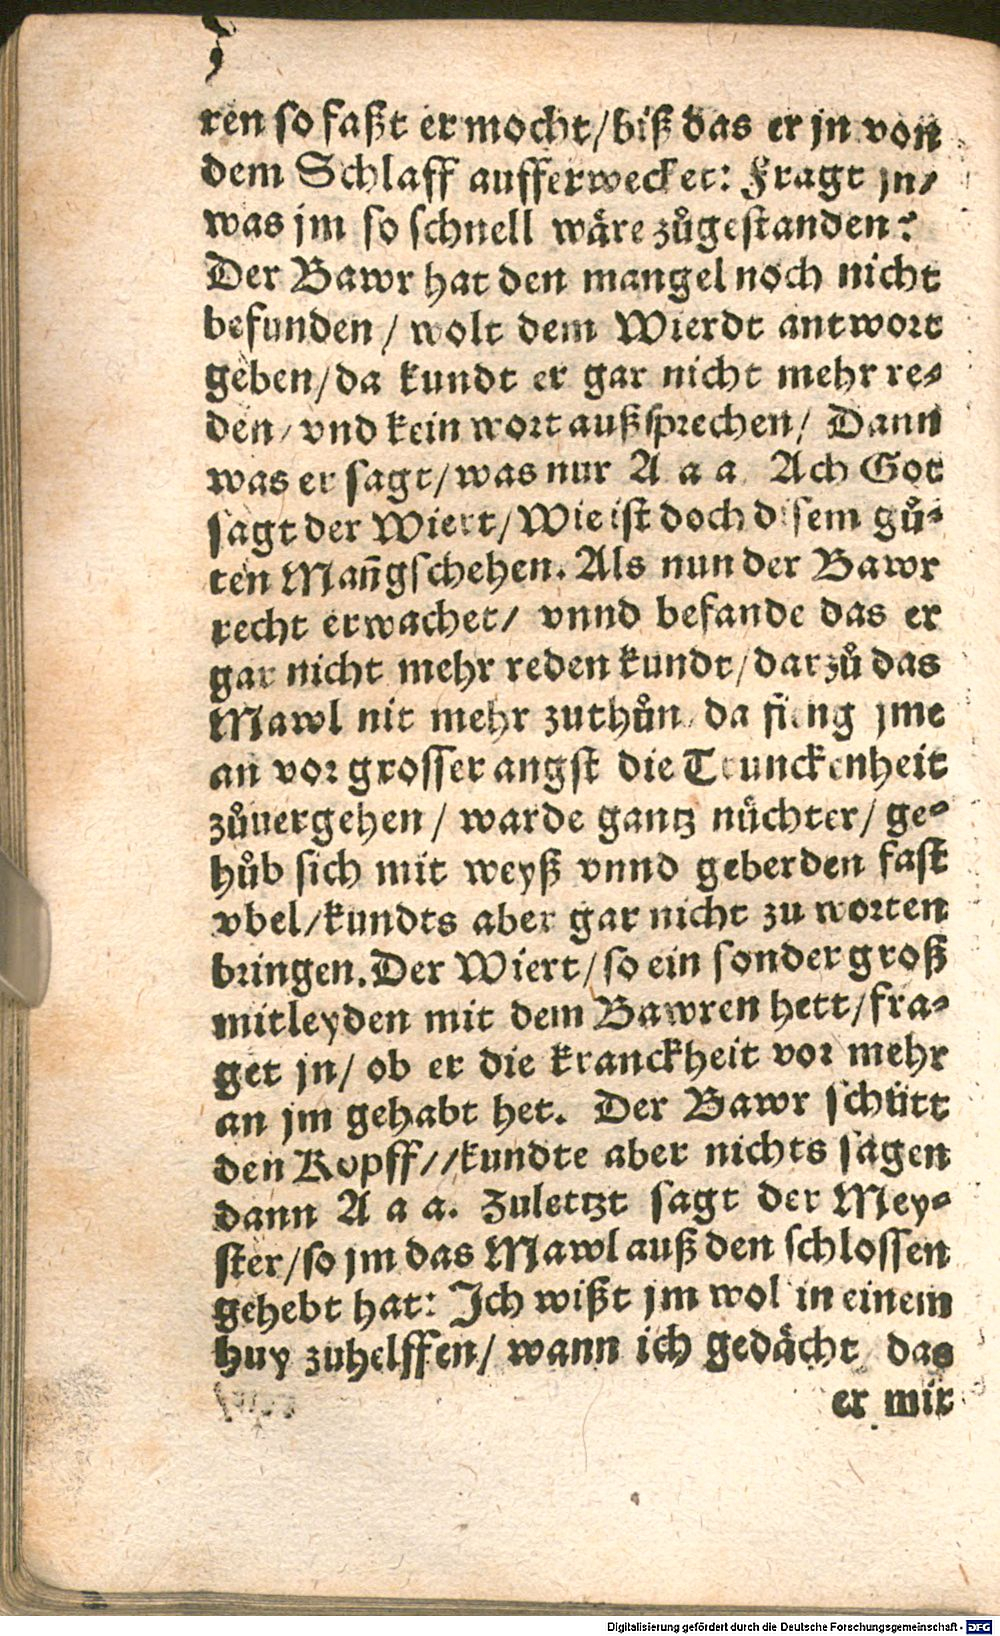 ren so faßt er mocht/biß das er jn von
dem Schlaff aufferwecket: Fragt jn/
was jm so schnell wäre zůgestanden?
Der Bawr hat den mangel noch nicht
befunden / wolt dem Wierdt antwort
geben/da kundt er gar nicht mehr re⸗
den/ vnd kein wort außsprechen/ Dann
was er sagt/was nur A a a. Ach Got
sagt der Wiert/Wie ist doch disem gů⸗
ten Mañ gschehen. Als nun der Bawr
recht erwachet/ vnnd befande das er
gar nicht mehr reden kundt/darzů das
Mawl nit mehr zuthůn/ da fieng jme
an vor grosser angst die Trunckenheit
zůuergehen / warde gantz nüchter/ ge⸗
hůb sich mit weyß vnnd geberden fast
vbel/kundts aber gar nicht zu worten
bringen. Der Wiert/so ein sonder groß
mitleyden mit dem Bawren hett/fra⸗
get jn/ ob er die kranckheit vor mehr
an jm gehabt het. Der Bawr schütt
den Kopff//kundte aber nichts sagen
dann A a a. Zuletzt sagt der Mey⸗
ster/so jm das Mawl auß den schlossen
gehebt hat: Ich wißt jm wol in einem
huy zuhelffen/ wann ich gedächt das
er mir
Digitalisierung gefördert durch die Deutsche Forschungsgemeinschaft - DFG